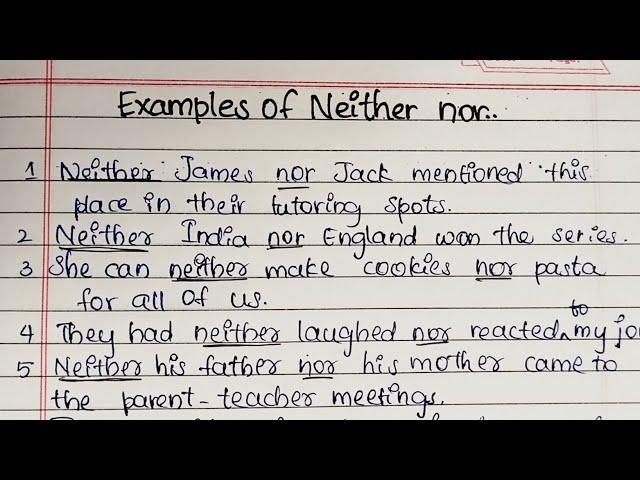 Examples of Neither nor..
1 Neither James nor Jack mentioned this
place in their tutoring spots.
2 Neither India nor England won the series.
3 She can neither make cookies nor pasta
for all of us.
4 They had neither laughed nor reacted to my jo
5 Neither his father nor his mother came to
the parent-teacher meetings.